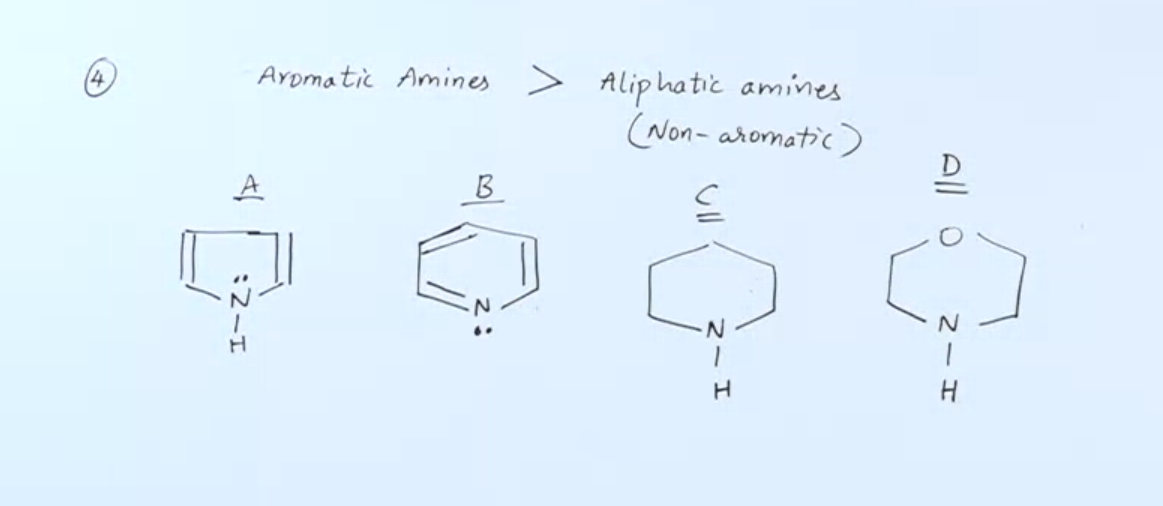 ④ Aromatic Amines > Aliphatic amines
(Non-aromatic)
A B C D
N
H
N
N
H
O
N
H